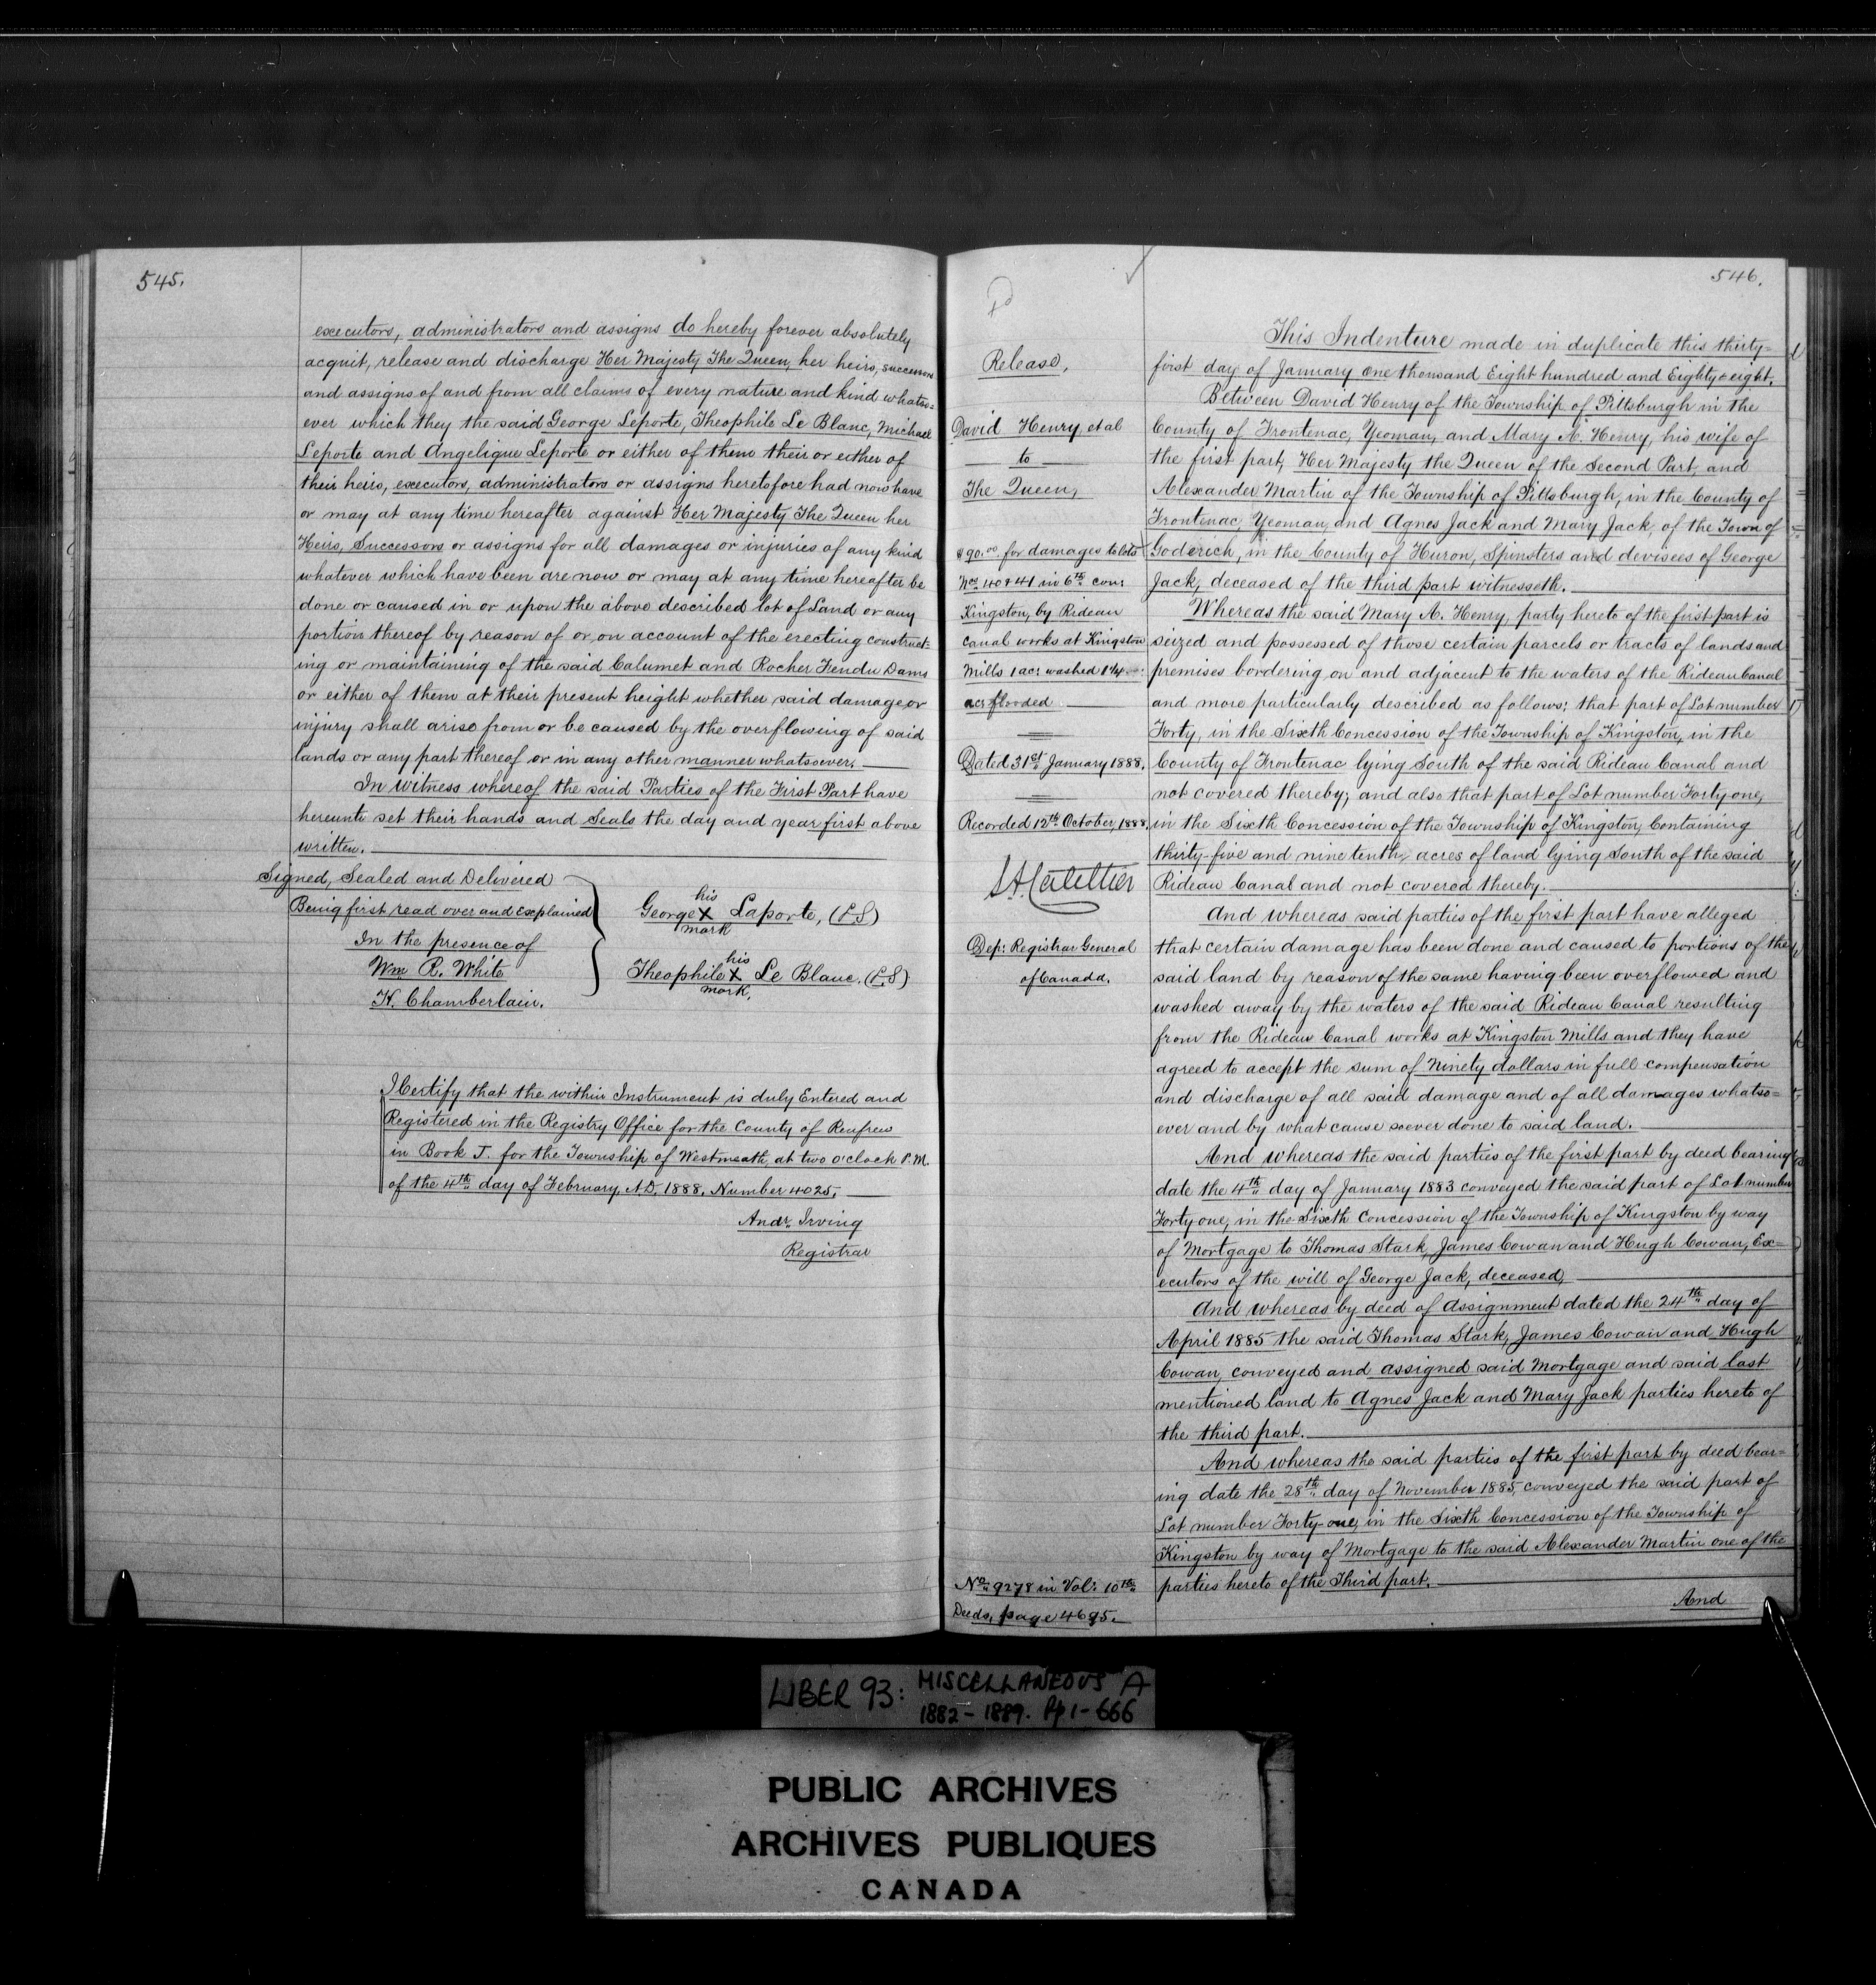 545.
executors, administrators and assigns do hereby forever absolutely
acquit, release and discharge Her Majesty The Queen, her heirs, successors
and assigns of and from all claims of every nature and kind whatso=
ever which they the said George Leporte, Theophile Le Blanc, Michael
Leporte and Angelique Leporte or either of them their or either of
their heirs, executors, administrators or assigns heretofore had now have
or may at any time hereafter against Her Majesty The Queen her
Heirs, Successors or assigns for all damages or injuries of any kind
whatever which have been are now or may at any time hereafter be
done or caused in or upon the above described lot of Land or any
portion thereof by reason of or, on account of the erecting construct=
ing or maintaining of the said Calumet and Rocher Fendu Dams
or either of them at their present height whether said damage or
injury shall arise from or be caused by the overflowing of said
lands or any part thereof or in any other manner whatsoever.
In witness whereof the said Parties of the First Part have
hereunto set their hands and Seals the day and year first above
written.
Signed, Sealed and Delivered
Being first read over and explained
In the presence of
Wm R. White
K. Chamberlain.
his
George X Laporte, (LS)
mark
his
Theophile X Le Blanc. (LS)
mark.
I Certify that the within Instrument is duly Entered and
Registered in the Registry Office for the County of Renfrew
in Book J. for the Township of Westmeath, at two o'clock P.M.
of the 4th day of February, A.D. 1888. Number 4025.
Andr. Irving
Registrar
546.
Release,
David Henry, et al
to
The Queen,
$90.00 for damages to lots
Nos 40 & 41 in 6th con:
Kingston, by Rideau
canal works at Kingston
Mills 1 ac: washed 1 1/4
acs flooded
Dated 31st January 1888.
Recorded 12th October, 1888.
Dep: Registrar General
of Canada.
No 9278 in Vol: 10th
Deeds, page 4695.
This Indenture made in duplicate this thirty=
first day of January one thousand Eight hundred and Eighty-eight.
Between David Henry of the Township of Pittsburgh in the
County of Frontenac, Yeoman, and Mary A. Henry, his wife of
the first part, Her Majesty the Queen of the Second Part, and
Alexander Martin of the Township of Pittsburgh, in the County of
Frontenac, Yeoman, and Agnes Jack and Mary Jack, of the Town of
Goderich, in the County of Huron, Spinsters and devisees of George
Jack, deceased of the third part witnesseth.
Whereas the said Mary A. Henry, party hereto of the first part is
seized and possessed of those certain parcels or tracts of lands and
premises bordering on and adjacent to the waters of the Rideau Canal
and more particularly described as follows: that part of Lot number
Forty, in the Sixth Concession of the Township of Kingston, in the
County of Frontenac lying South of the said Rideau Canal and
not covered thereby; and also that part of Lot number Forty-one,
in the Sixth Concession of the Township of Kingston, Containing
thirty-five and nine tenths acres of land lying South of the said
Rideau Canal and not covered thereby.
And whereas said parties of the first part have alleged
that certain damage has been done and caused to portions of the
said land by reason of the same having been overflowed and
washed away by the waters of the said Rideau Canal resulting
from the Rideau Canal works at Kingston Mills and they have
agreed to accept the sum of Ninety dollars in full compensation
and discharge of all said damage and of all damages whatso=
ever and by what cause soever done to said land.
And whereas the said parties of the first part by deed bearing
date the 4th day of January 1883 conveyed the said part of Lot number
Forty one, in the Sixth Concession of the Township of Kingston by way
of Mortgage to Thomas Stark, James Cowan and Hugh Cowan, Ex=
ecutors of the will of George Jack, deceased,
And whereas by deed of Assignment dated the 24th day of
April 1885 the said Thomas Stark, James Cowan and Hugh
Cowan, conveyed and assigned said Mortgage and said last
mentioned land to Agnes Jack and Mary Jack parties hereto of
the third part.
And whereas the said parties of the first part by deed bear=
ing date the 28th day of November 1885, conveyed the said part of
Lot number Forty-one, in the Sixth Concession of the Township of
Kingston by way of Mortgage to the said Alexander Martin one of the
parties hereto of the Third part.
And
LIBER 93: MISCELLANEOUS A
1882-1889. Pp 1-666
PUBLIC ARCHIVES
ARCHIVES PUBLIQUES
CANADA